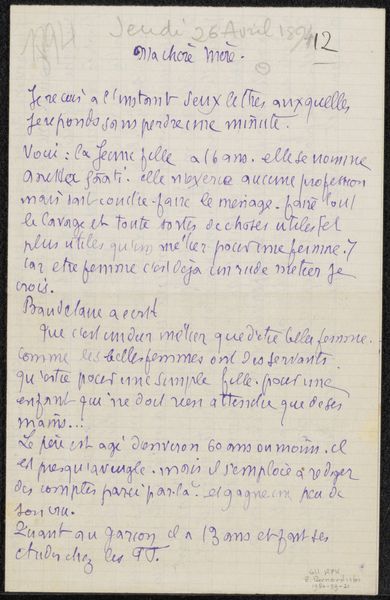 1894
Jeudi 26 Avril 1894
12
Ma chère Mère.
Je reçois à l'instant deux lettres auxquelles
Je réponds sans perdre une minute.
Voici: la Jeune fille a 16 ans. elle se nomine
elle n'exerce aucune profession
mais sait coudre - faire le ménage - faire tout
le lavage et toute sortes de choses utiles (et
plus utiles qu'un métier pour une femme.)
car etre femme c'est déjà un rude metier Je
crois.
Baudelaire a ecrit
Que c'est un dur métier que d'être belle femme.
comme les belles femmes ont des servants
qu'est ce pour une simple fille. pour une
enfant qui ne doit rien attendre que de ses
mains...
Le père est agé d'environ 60 ans ou moins. il
est presqu'aveugle. mais il s'emploie à rediger
des comptes par ci par là - et gagne un peu de
son
Quant au garçon il a 13 ans et fait ses
etudes chez les
E. Bernard